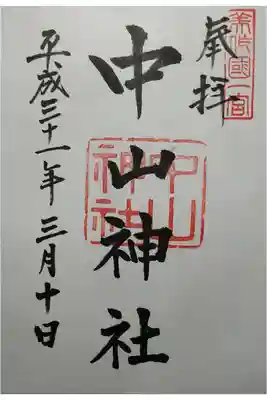 美作國一宮
奉拝
中山神社
中山神社
平成三十一年三月十日